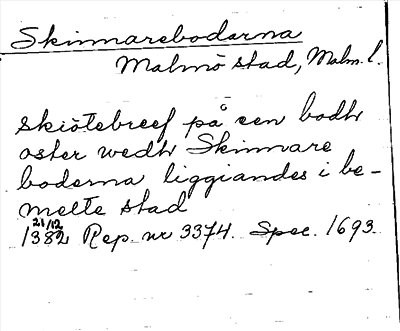 Skinnarebodarna
Malmö stad, Malm.l.
Skiötebreef på een bodh
oster wedh Skinnare
boderna liggiandes i be-
melte stad
21/12
1382 Rep. nr 3374. Spec. 1693.